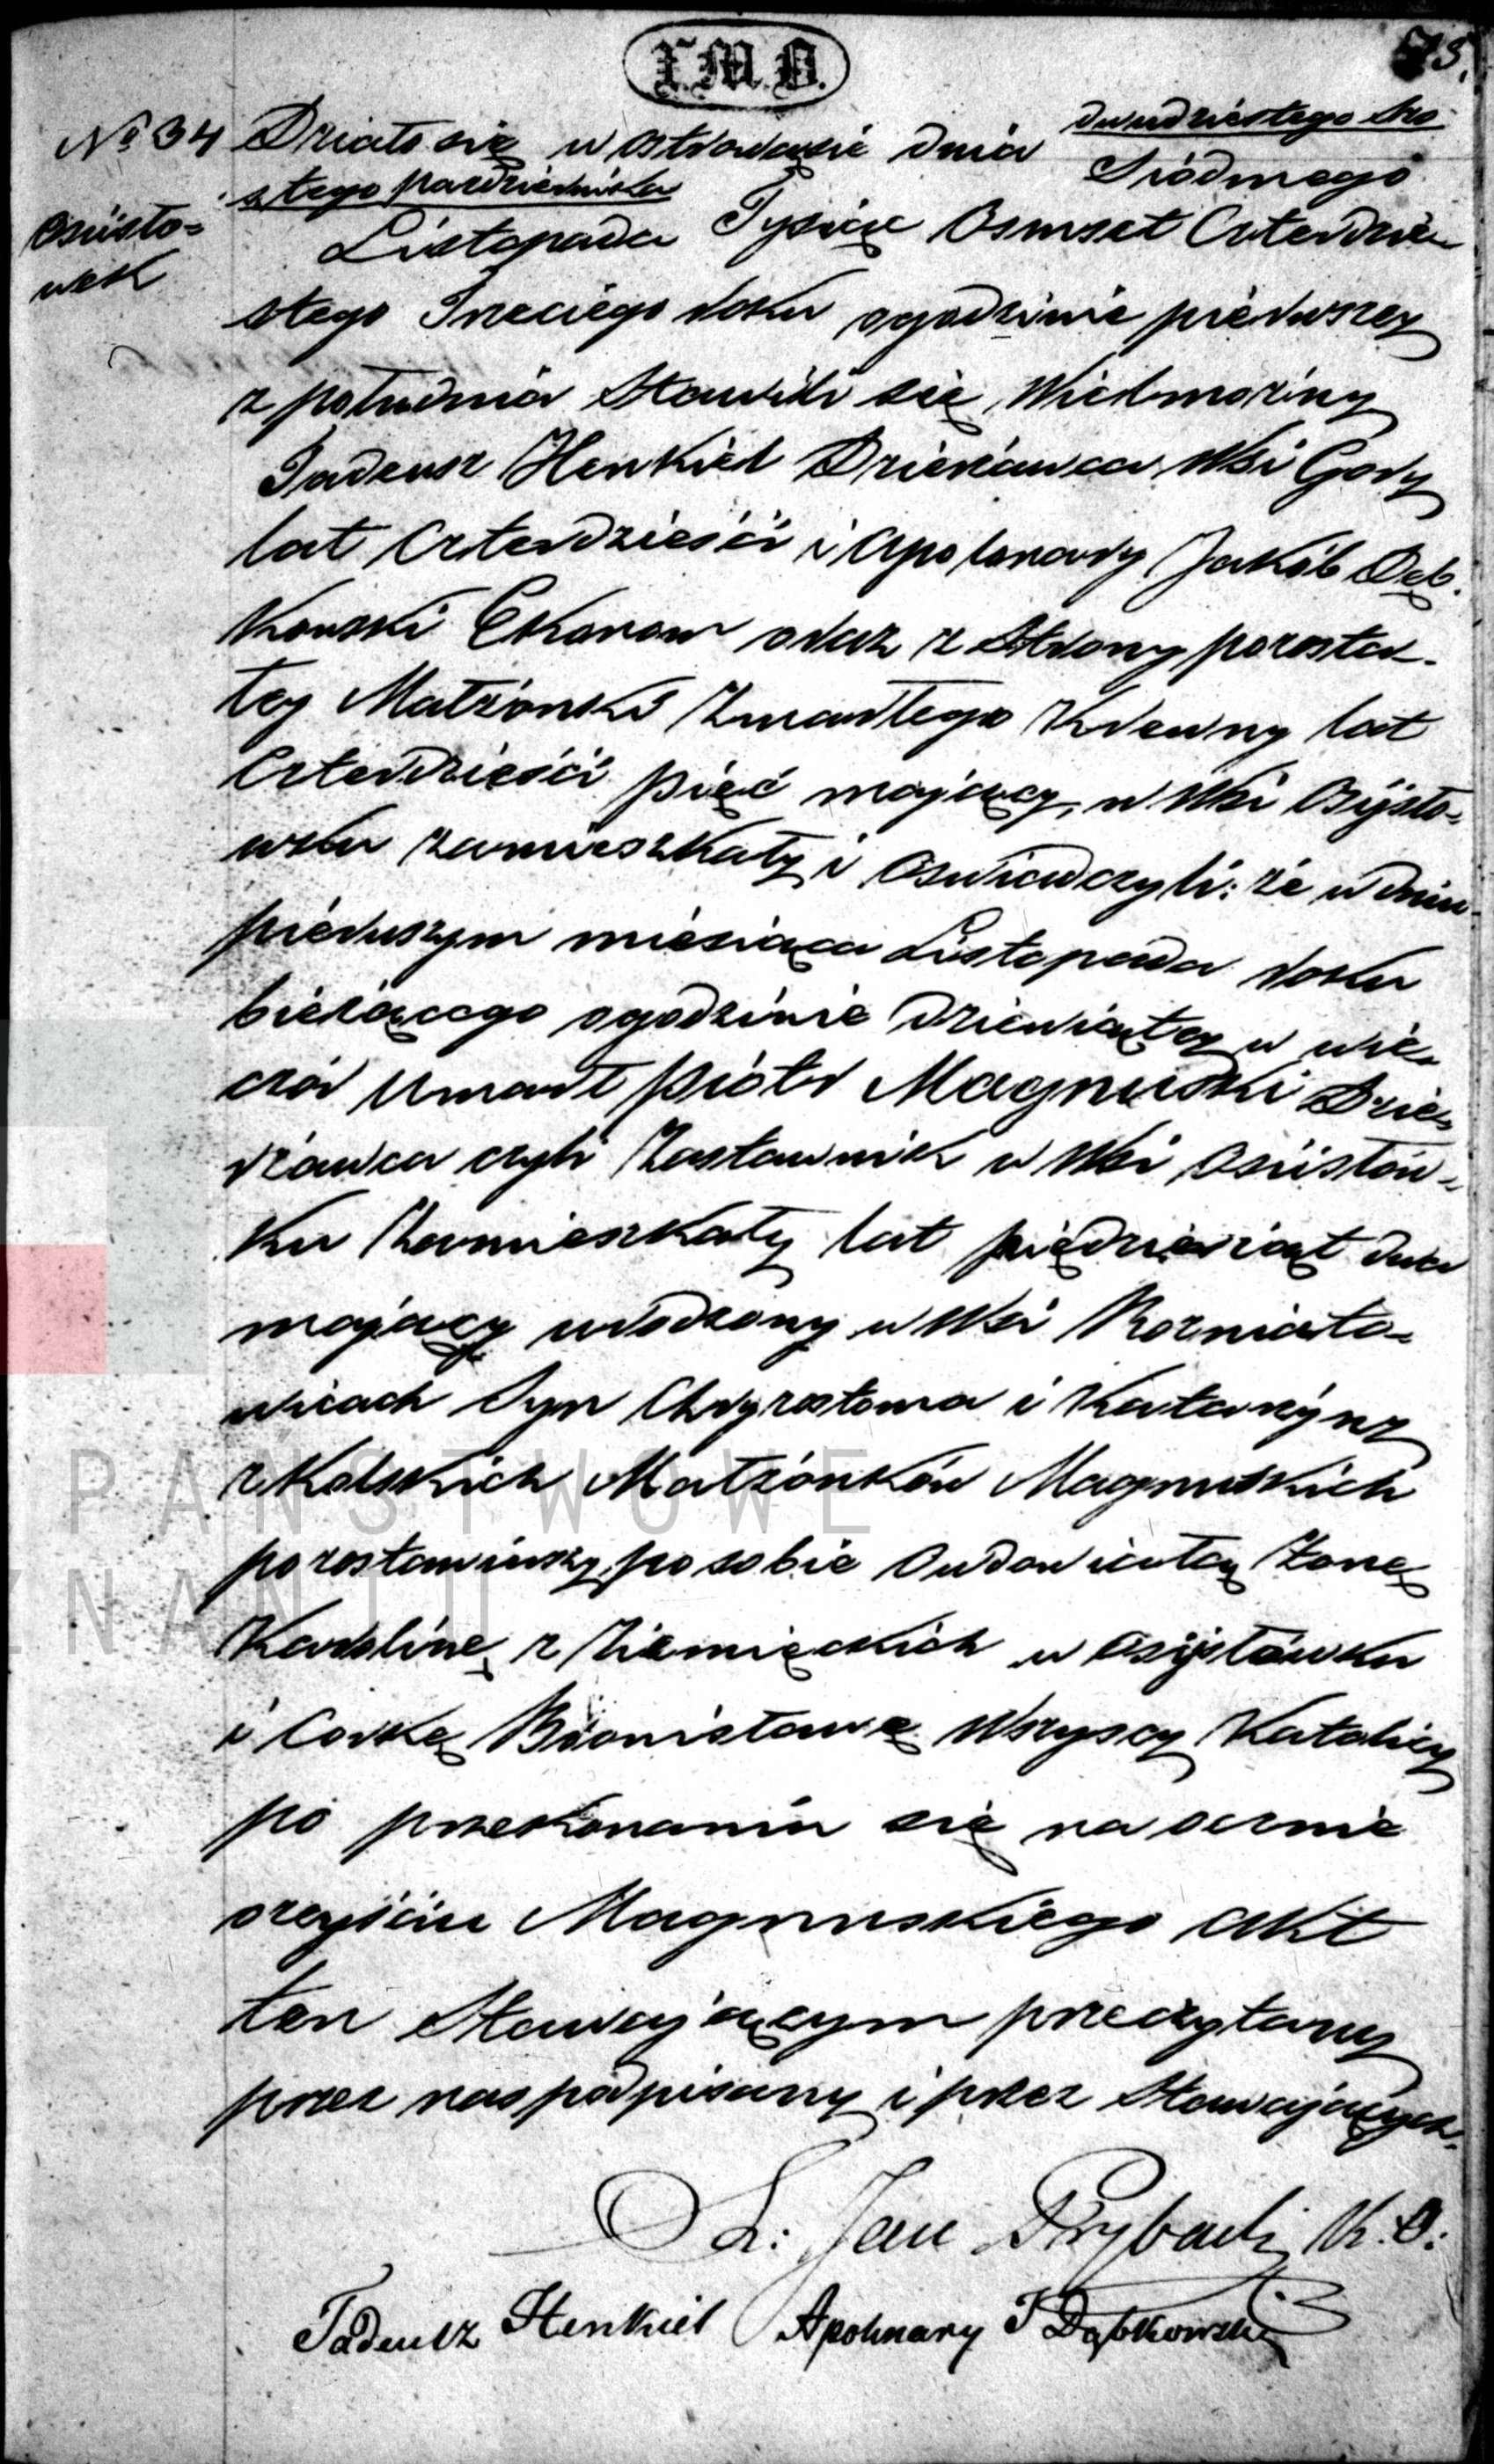 I.M.D.
75.
No 34 Działo się w Ostrowąsie dnia dwudziestego szo-
stego października Siódmego
Osiisto=
wek
Listopada Tysiąc Osmset Czterdzie-
stego Trzeciego roku o godzinie pierwszey
z południa Stawili się, Wielmożny
Tadeusz Henkiel Dzierżawca Wsi Gory
lat Czterdzieści i Apolonary Jakób Dąb-
kowski Ekonom oraz z Strony pozosta-
łey Małżonki Zmarłego Krewny lat
Czterdzieści pięć mający, w Wsi Osijsto-
wku zamieszkały i Oswiadczyli: że w dniu
pierwszym miesiąca Listopada roku
bieżącego o godzinie dziewiątey w wie-
czór Umarł Piotr Magnuski Dzie-
rżawca czyli Zastawnik w Wsi Osiistow-
ku Zamieszkały lat pięćdziesiąt dwa
mający urodzony w Wsi Rozniato-
wicach Syn Chryzostoma i Katarzyny
z Kolskich Małżonków Magnuskich
pozostawiwszy po sobie Owdowiałą Żonę
Karolinę z Ziemięckich w Osijstówku
i Corkę Bronisławę Wszyscy Katolicy
po przekonaniu się na ocznie
o zejściu Magnuskiego Akt
ten Stawającym przeczytany
przez nas podpisany i przez Stawających.
X. Jan Przybach K. O.
Tadeusz Henkiel Apolinary J Dąbkowski
PAŃSTWOWE
ZNANIU